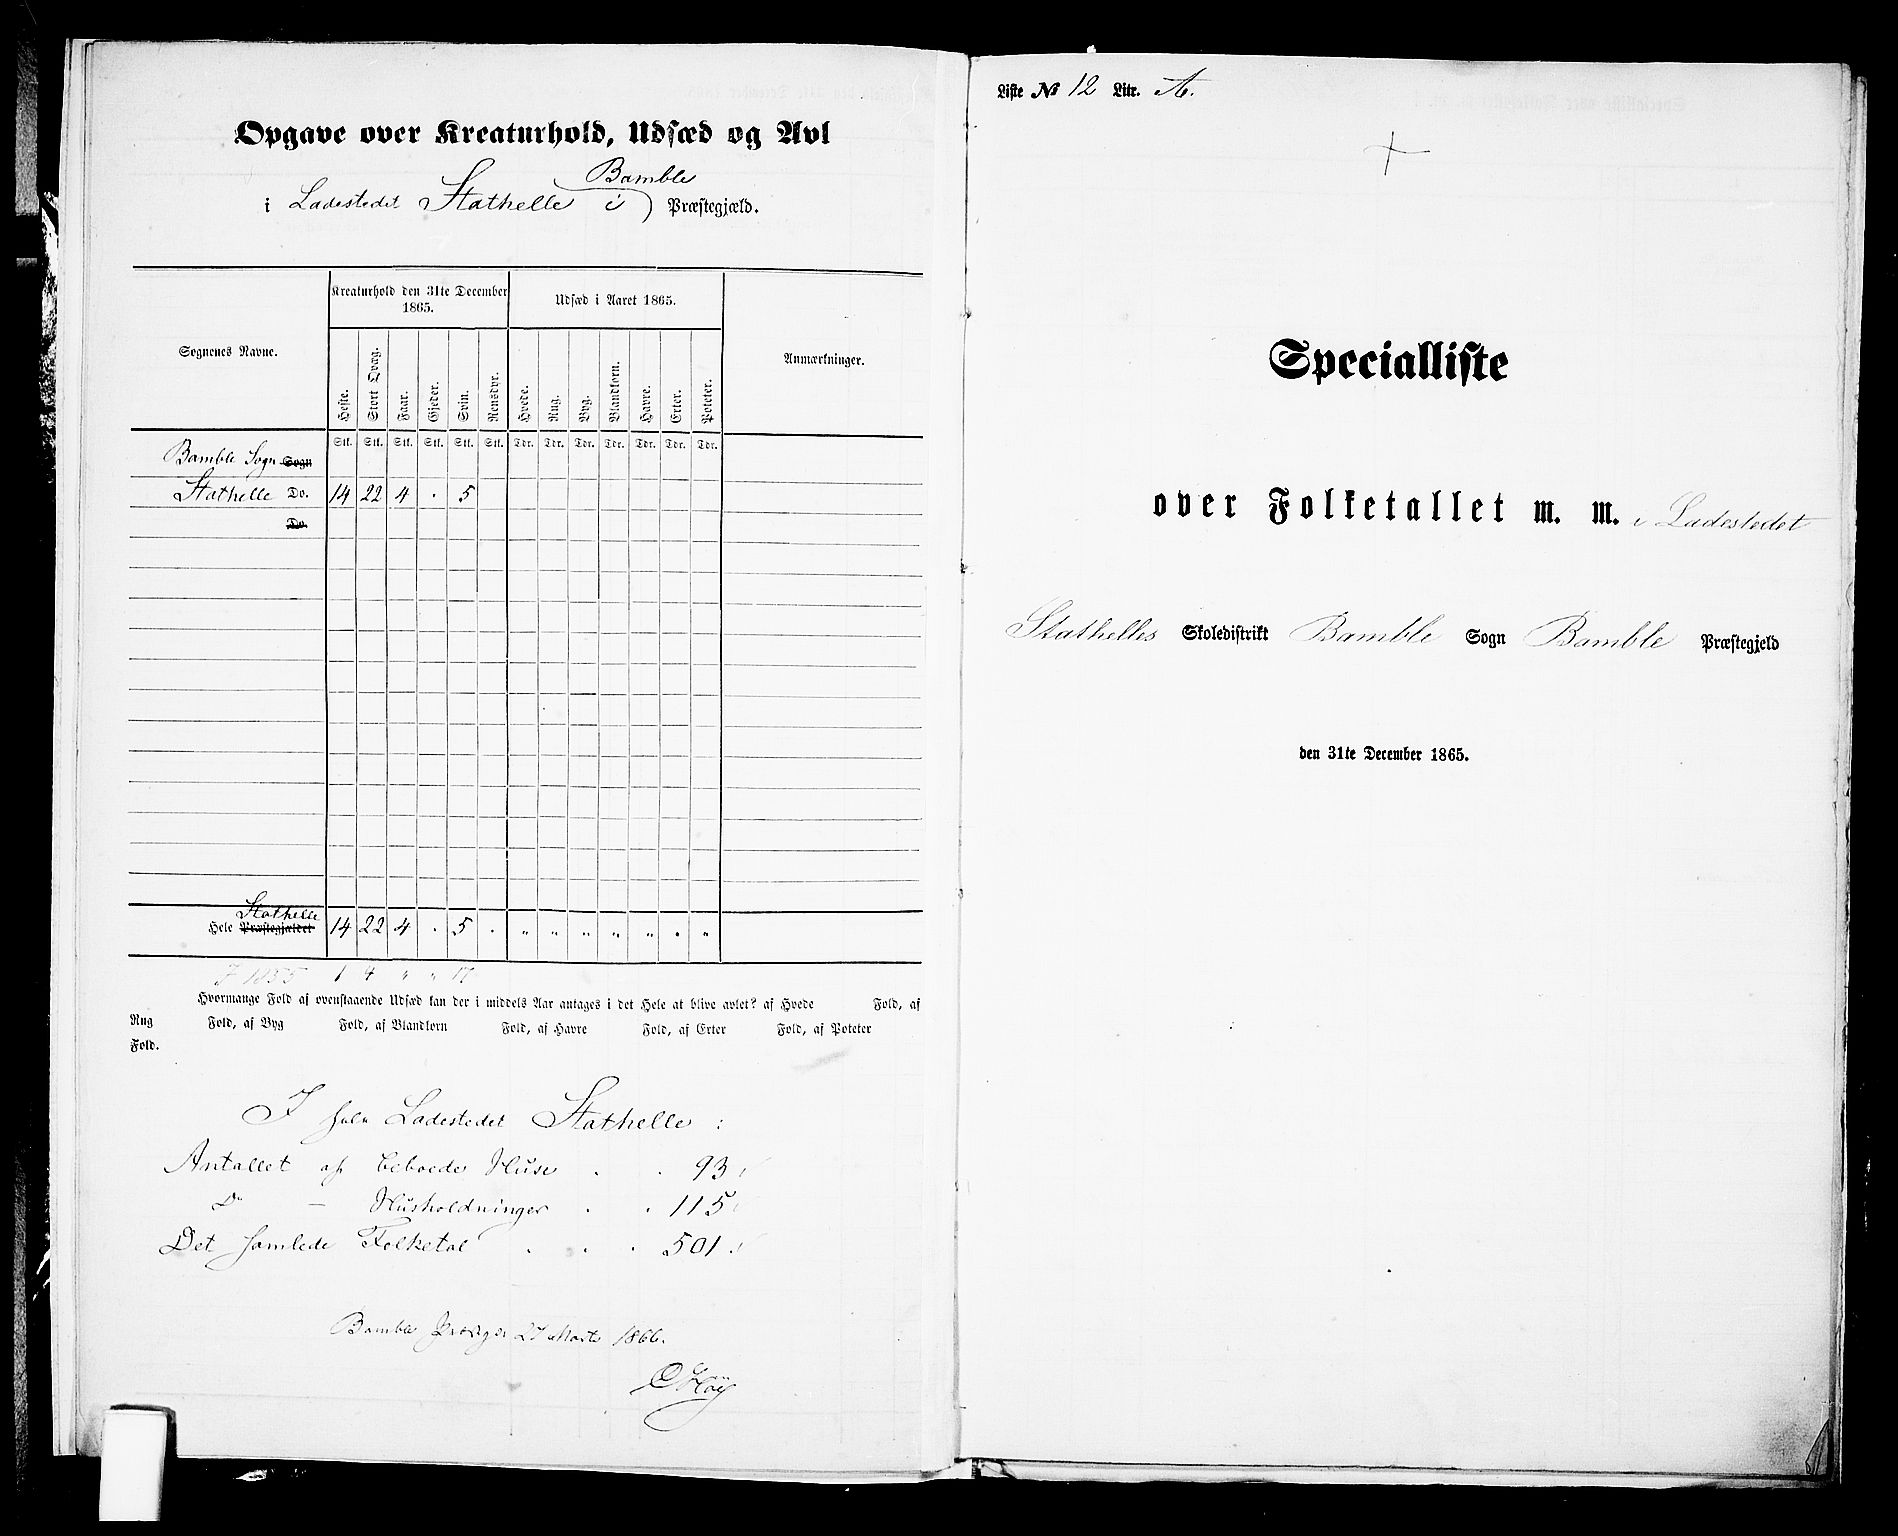 Opgave over Kreaturhold, Udsæd og Avl
Bamble
i Ladestedet Stathelle i Præstegjæld.
Sognenes Navne.
Kreaturhold den 31te December 1865.
Udsæd i Aaret 1865.
Anmærkninger.
Heste. Stort Qvæg. Faar. Gjeder. Svin. Rensdyr. Hvede. Rug. Byg. Blandkorn. Havre. Erter. Poteter.
Stk. Stk. Stk. Stk. Stk. Stk. Tdr. Tdr. Tdr. Tdr. Tdr. Tdr. Tdr.
Bamble Sogn Sogn
Stathelle Do. 14 22 4 . 5
Do.
Stathelle
Hele Præstegjældet 14 22 4 . 5 . " " " " " " "
I 1855 1 4 " " 17
Hvormange Fold af ovenstaaende Udsæd kan der i middels Aar antages i det Hele at blive avlet? af Hvede Fold, af
Rug Fold, af Byg Fold, af Blandkorn Fold, af Havre Fold, af Erter Fold, af Poteter
Fold.
I hele Ladestedet Stathelle :
Antallet af beboede Huse . . 93
Do — Husholdninger . . 115
Det samlede Folketal . . . 501.
Bamble 27 Marts 1866.
Liste No 12 Litr. A.
Specialliste
over Folketallet m. m. i Ladestedet
Stathelles Skoledistrikt Bamble Sogn Bamble Præstegjeld
den 31te December 1865.